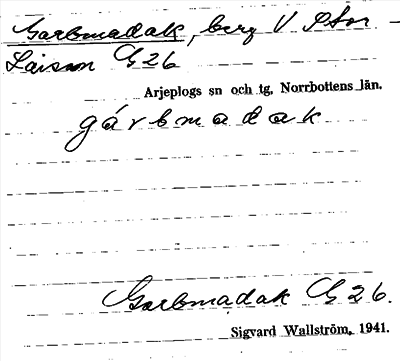 Garbmadak, berg V Stor-
Laisan G 26
Arjeplogs sn och tg, Norrbottens län.
gárbmadak
Garbmadak G 26.
Sigvard Wallström, 1941.